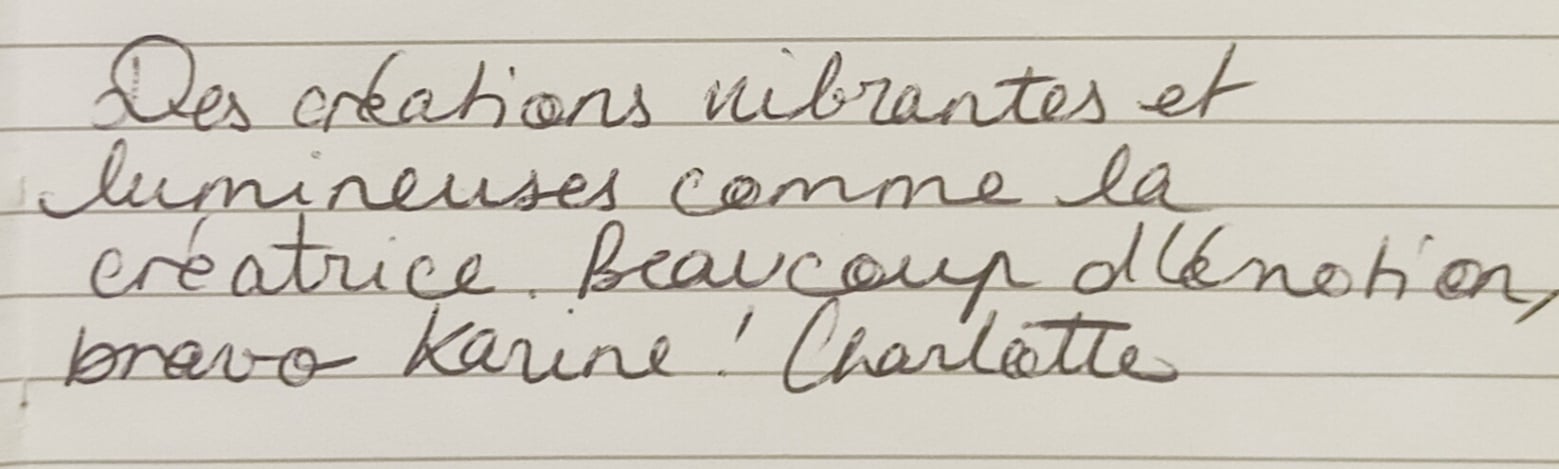 Des créations vibrantes et
lumineuses comme la
créatrice. Beaucoup d'émotion,
bravo Karine ! Charlotte